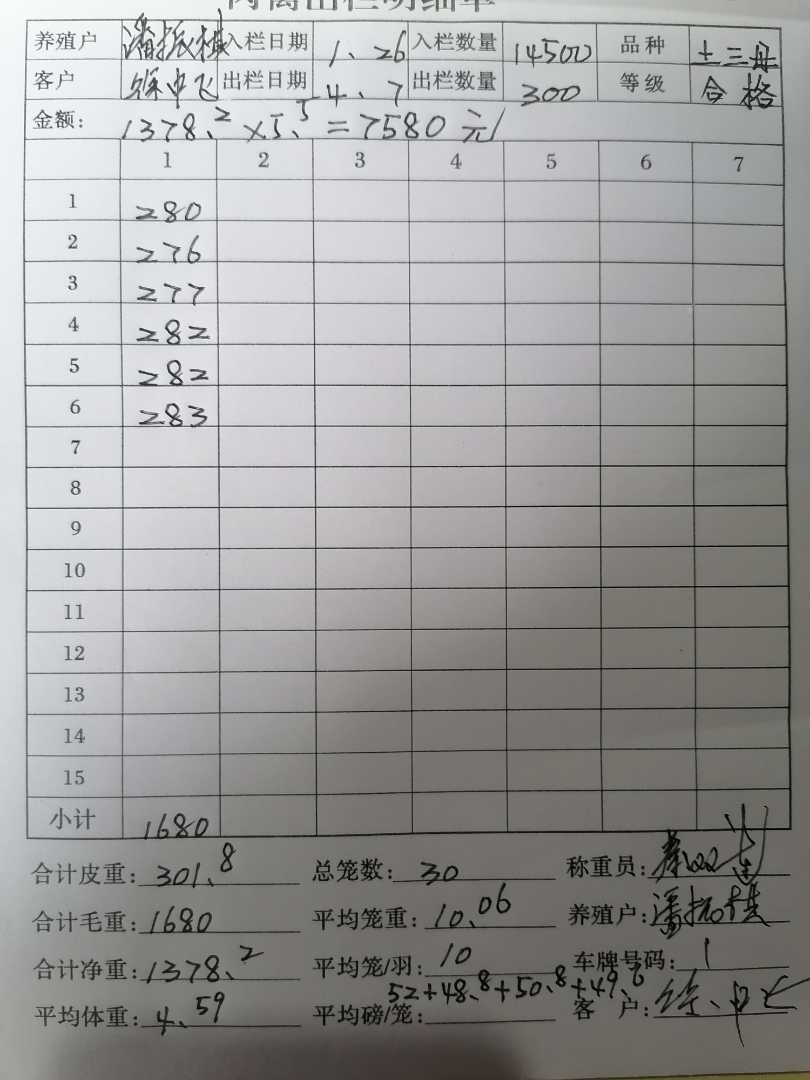 肉禽出栏明细单
养殖户 潘振楼 入栏日期 1、26 入栏数量 14500 品种 土三母
客户 徐中飞 出栏日期 4、7 出栏数量 300 等级 合格
金额: 1378、2×5、5=7580元
1 2 3 4 5 6 7
1 280
2 276
3 277
4 282
5 282
6 283
7
8
9
10
11
12
13
14
15
小计 1680
合计皮重: 301、8 总笼数: 30 称重员:
合计毛重: 1680 平均笼重: 10、06 养殖户: 潘振楼
合计净重: 1378、2 平均笼/羽: 10 车牌号码: 1
平均体重: 4、59 平均磅/笼: 52+48、8+50、8+49、6 客 户: 徐、中飞